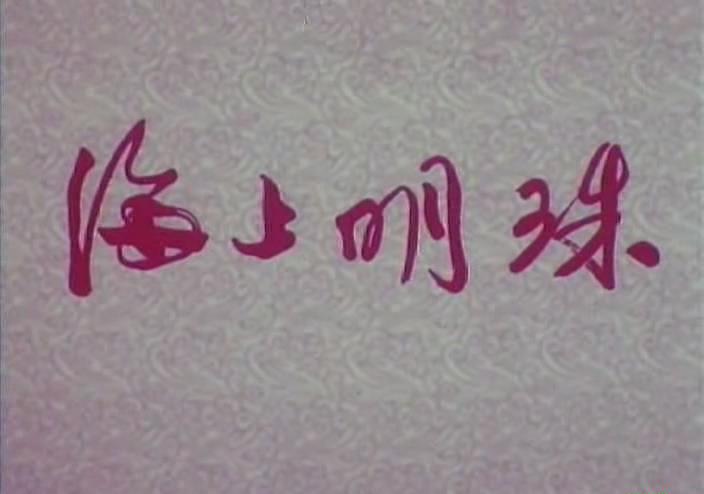 海上明珠